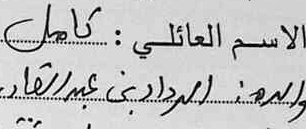 الاسم العائلي : كاهل
والده : الردادي بن عبد القادر